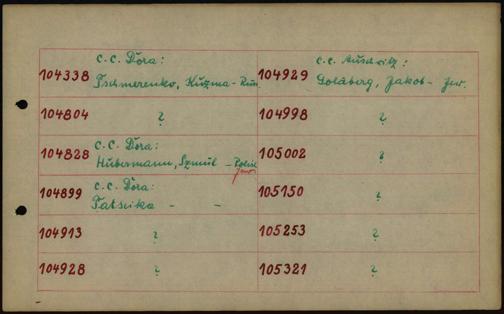 c.c. Dora:
104338 Tschmerenko, Kuzma - Rus
104804 ?
c.c. Dora:
104828 Hubermann, Szmul - Polish
Jew
c.c. Dora:
104899 Tatseika - -
104913 ?
104928 ?
c.c. Auschwitz:
104929 Goldberg, Jakob - Jew.
104998 ?
105002 ?
105150 ?
105253 ?
105321 ?